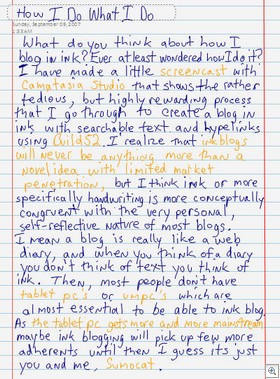 How I Do What I Do
Sunday, September 09, 2007
1:33 AM
What do you think about how I
blog in ink? Ever at least wondered how I do it?
I have made a little screencast with
Camatasia Studio that shows the rather
tedious, but highly rewarding process
that I go through to create a blog in
ink with searchable text and hyperlinks
using GuildS2. I realize that inkblogs
will never be anything more than a
novel idea with limited market
penetration, but I think ink or more
specifically handwriting is more conceptually
congruent with the very personal,
self-reflective nature of most blogs.
I mean a blog is really like a web
diary, and when you think of a diary
you don't think of text you think of
ink. Then, most people don't have
tablet pc's or umpc's which are
almost essential to be able to ink blog.
As the tablet pc gets more and more mainstream
maybe ink blogging will pick up few more
adherents until then I guess its just
you and me, Sumocat.